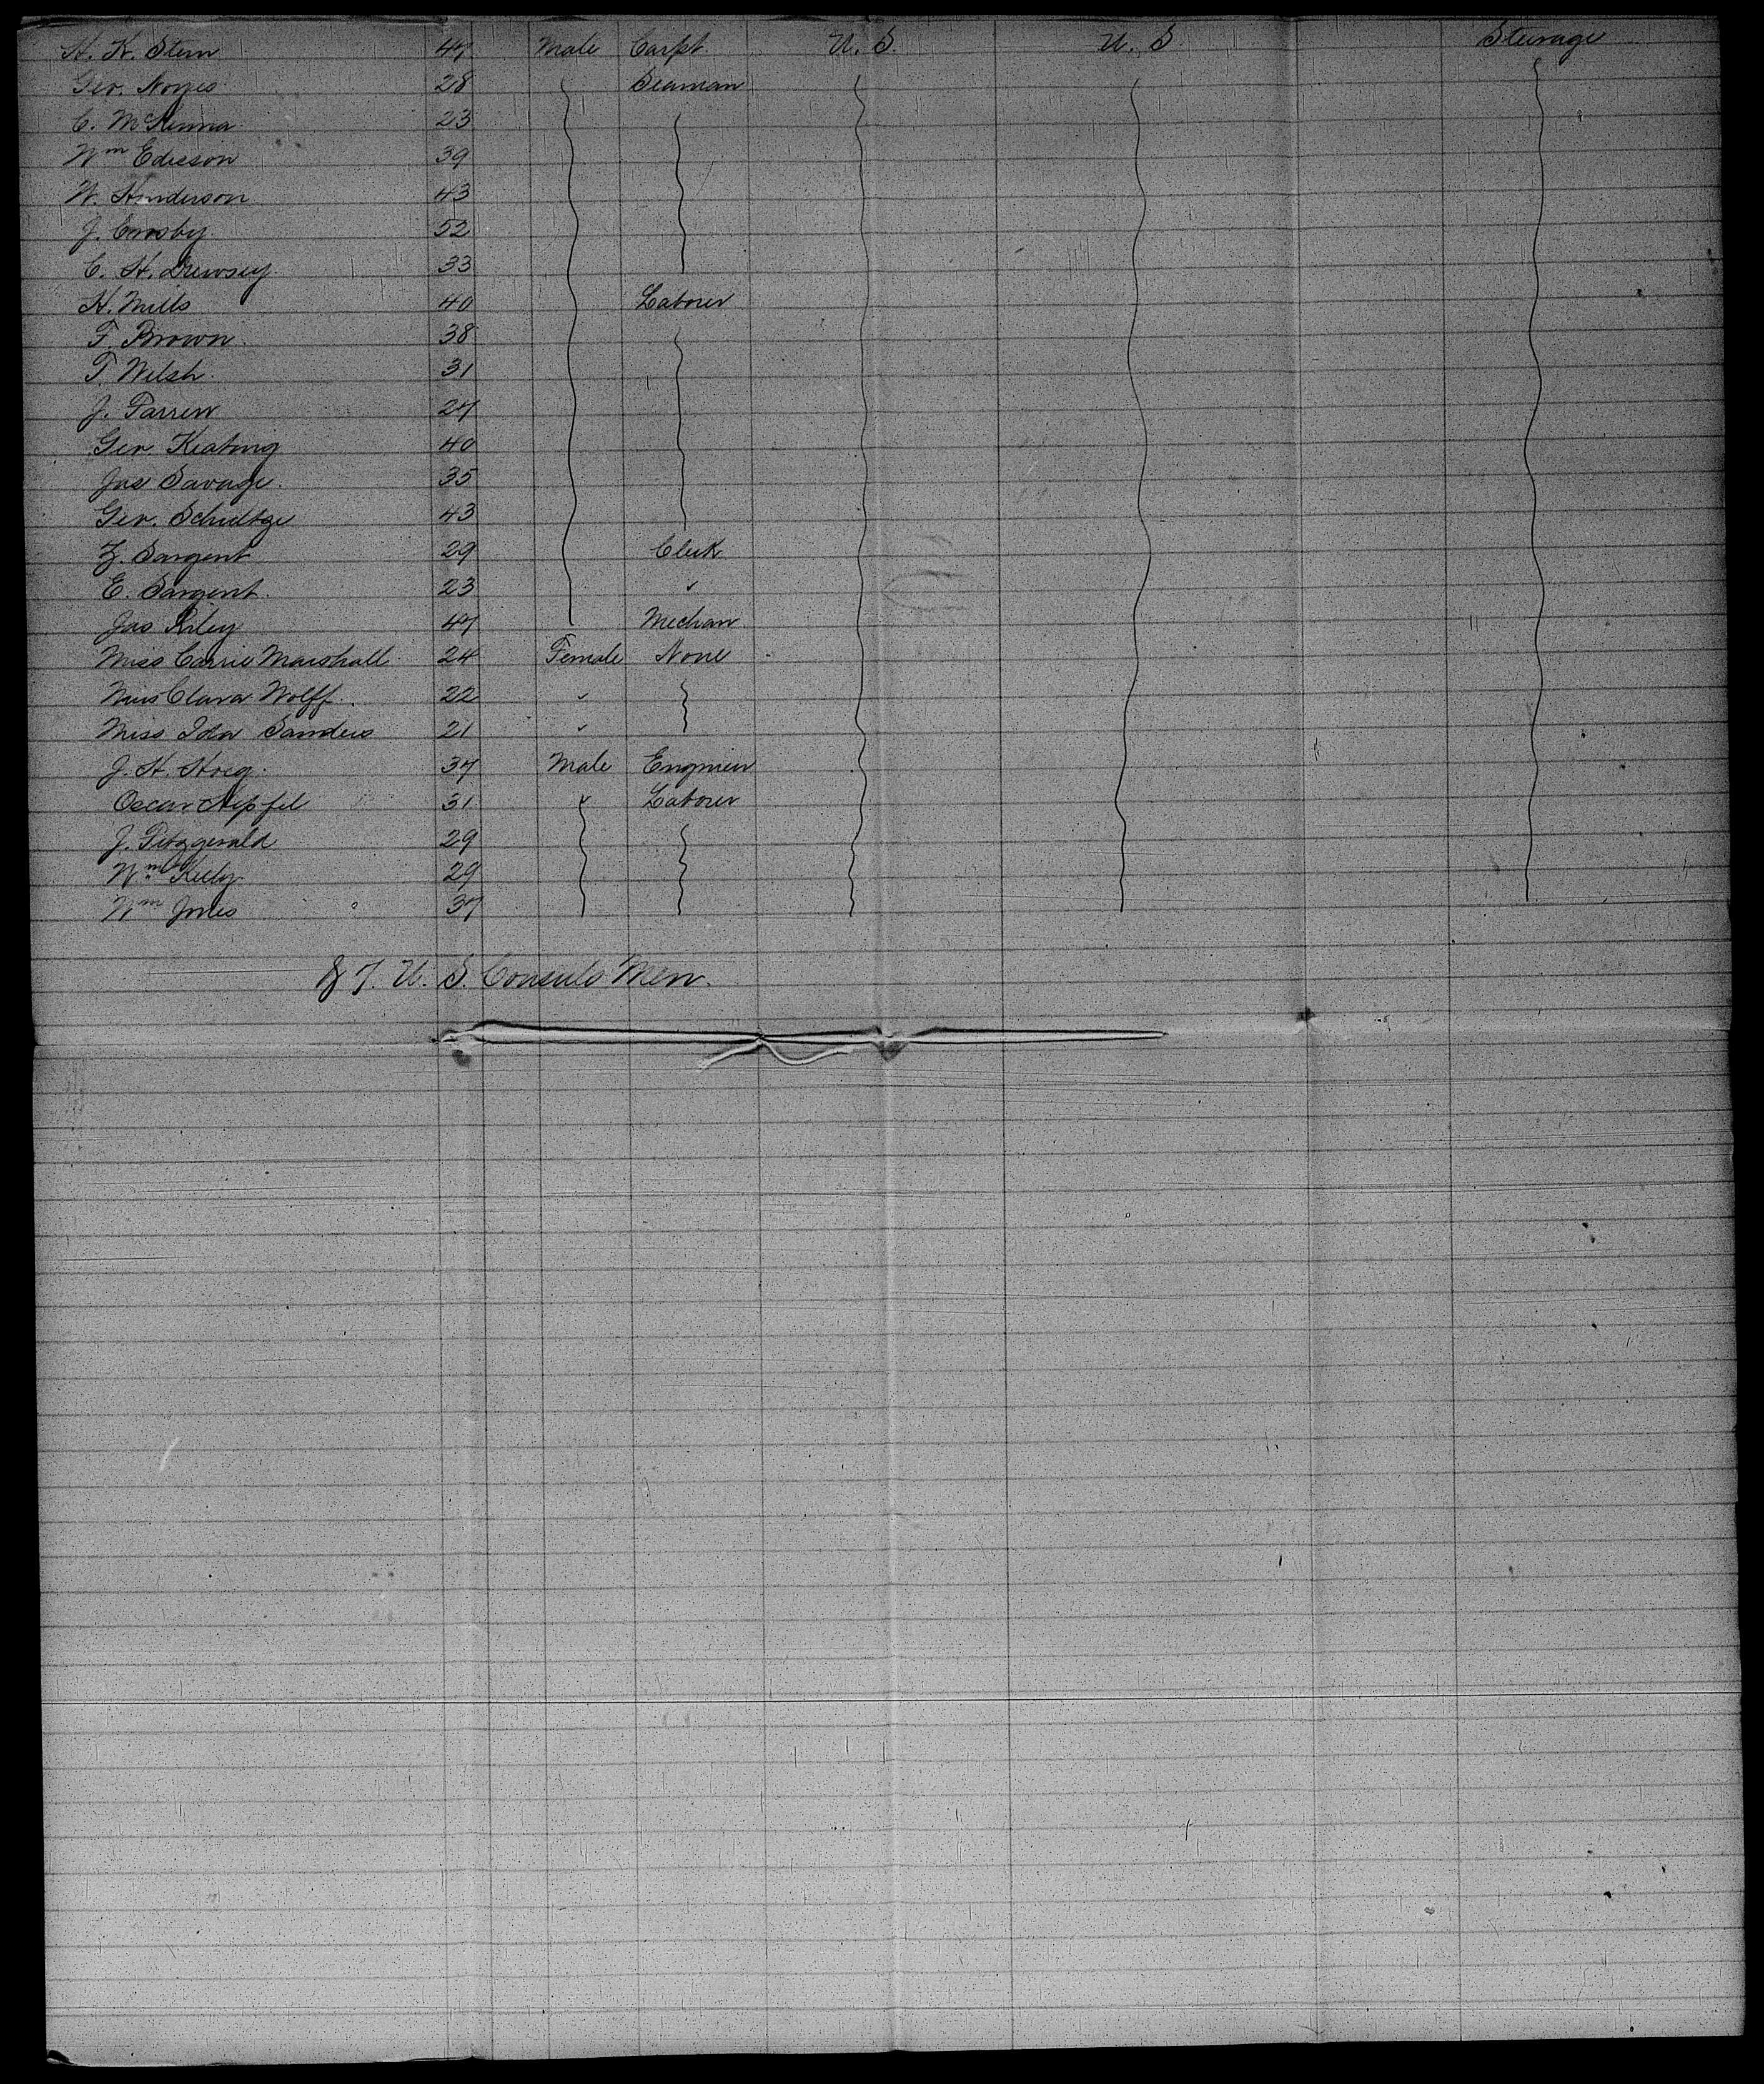 H. K. Stern 47 Male Carpt U. S U. S. Steerage
Geo. Noyes 28 Seaman
C. McKenna 23
Wm Edisson 39
W. Henderson 43
J. Crosby 52
C. H. Drewsey 33
H. Mills 40 Laborer
F. Brown 38
T. Welsh 31
J. Farren 27
Geo. Keating 40
Jas Savage 35
Geo. Schultze 43
Z. Sargent 29 Clerk
E. Sargent 23 "
Jas Riley 47 Mechan
Miss Carrie Marshall 24 Female None
Miss Clara Wolff 22 "
Miss Ida Sanders 21 "
J. H. Hoeg 37 Male Engineer
Oscar 31 " Laborer
J. Fitzgerald 29
Wm Kelly 29
Wm Jones 37
& 7. U. S. Consuls Men.